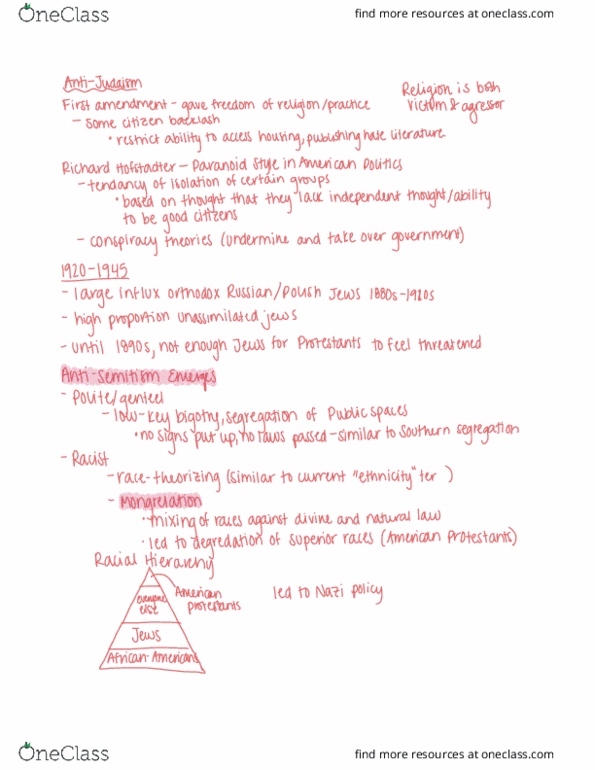 OneClass
find more resources at oneclass.com
Anti-Judaism
Religion is both
victim & agressor
First amendment - gave freedom of religion/practice
- some citizen backlash
• restrict ability to access housing, publishing hate literature
Richard Hofstadter - Paranoid Style in American Politics
- tendancy of isolation of certain groups
• based on thought that they lack independent thought/ability
to be good citizens
- conspiracy theories (undermine and take over government)
1920-1945
- large influx orthodox Russian/Polish Jews 1880s-1920s
- high proportion unassimilated jews
- until 1890s, not enough Jews for Protestants to feel threatened
Anti-Semitism Emerges
- Polite/genteel
- low-key bigotry, segregation of public spaces
• no signs put up, no laws passed - similar to Southern segregation
- Racist
- race-theorizing (similar to current "ethnicity" ter )
- Mongrelation
• mixing of races against divine and natural law
• led to degredation of superior races (American Protestants)
Racial Hierarchy
American
protestants
led to Nazi policy
everyone
else
Jews
African-Americans
OneClass
find more resources at oneclass.com